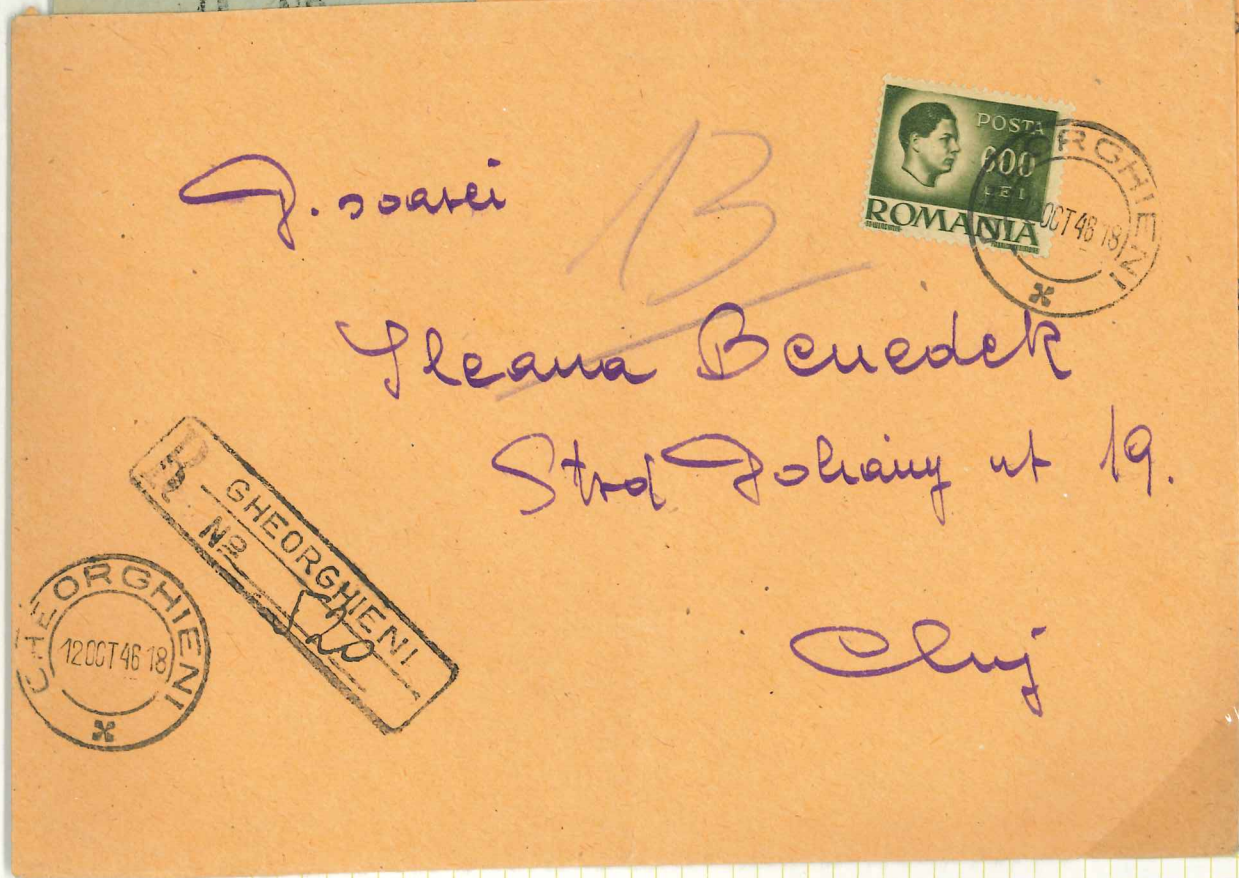 POSTA
600
LEI
ROMANIA
GHEORGHIENI
OCT 46 18
13
D. soarei
Ileana Benedek
Strd Dohany nt 19.
Cluj
R GHEORGHIENI
No 520
GHEORGHIENI
12 OCT 46 18